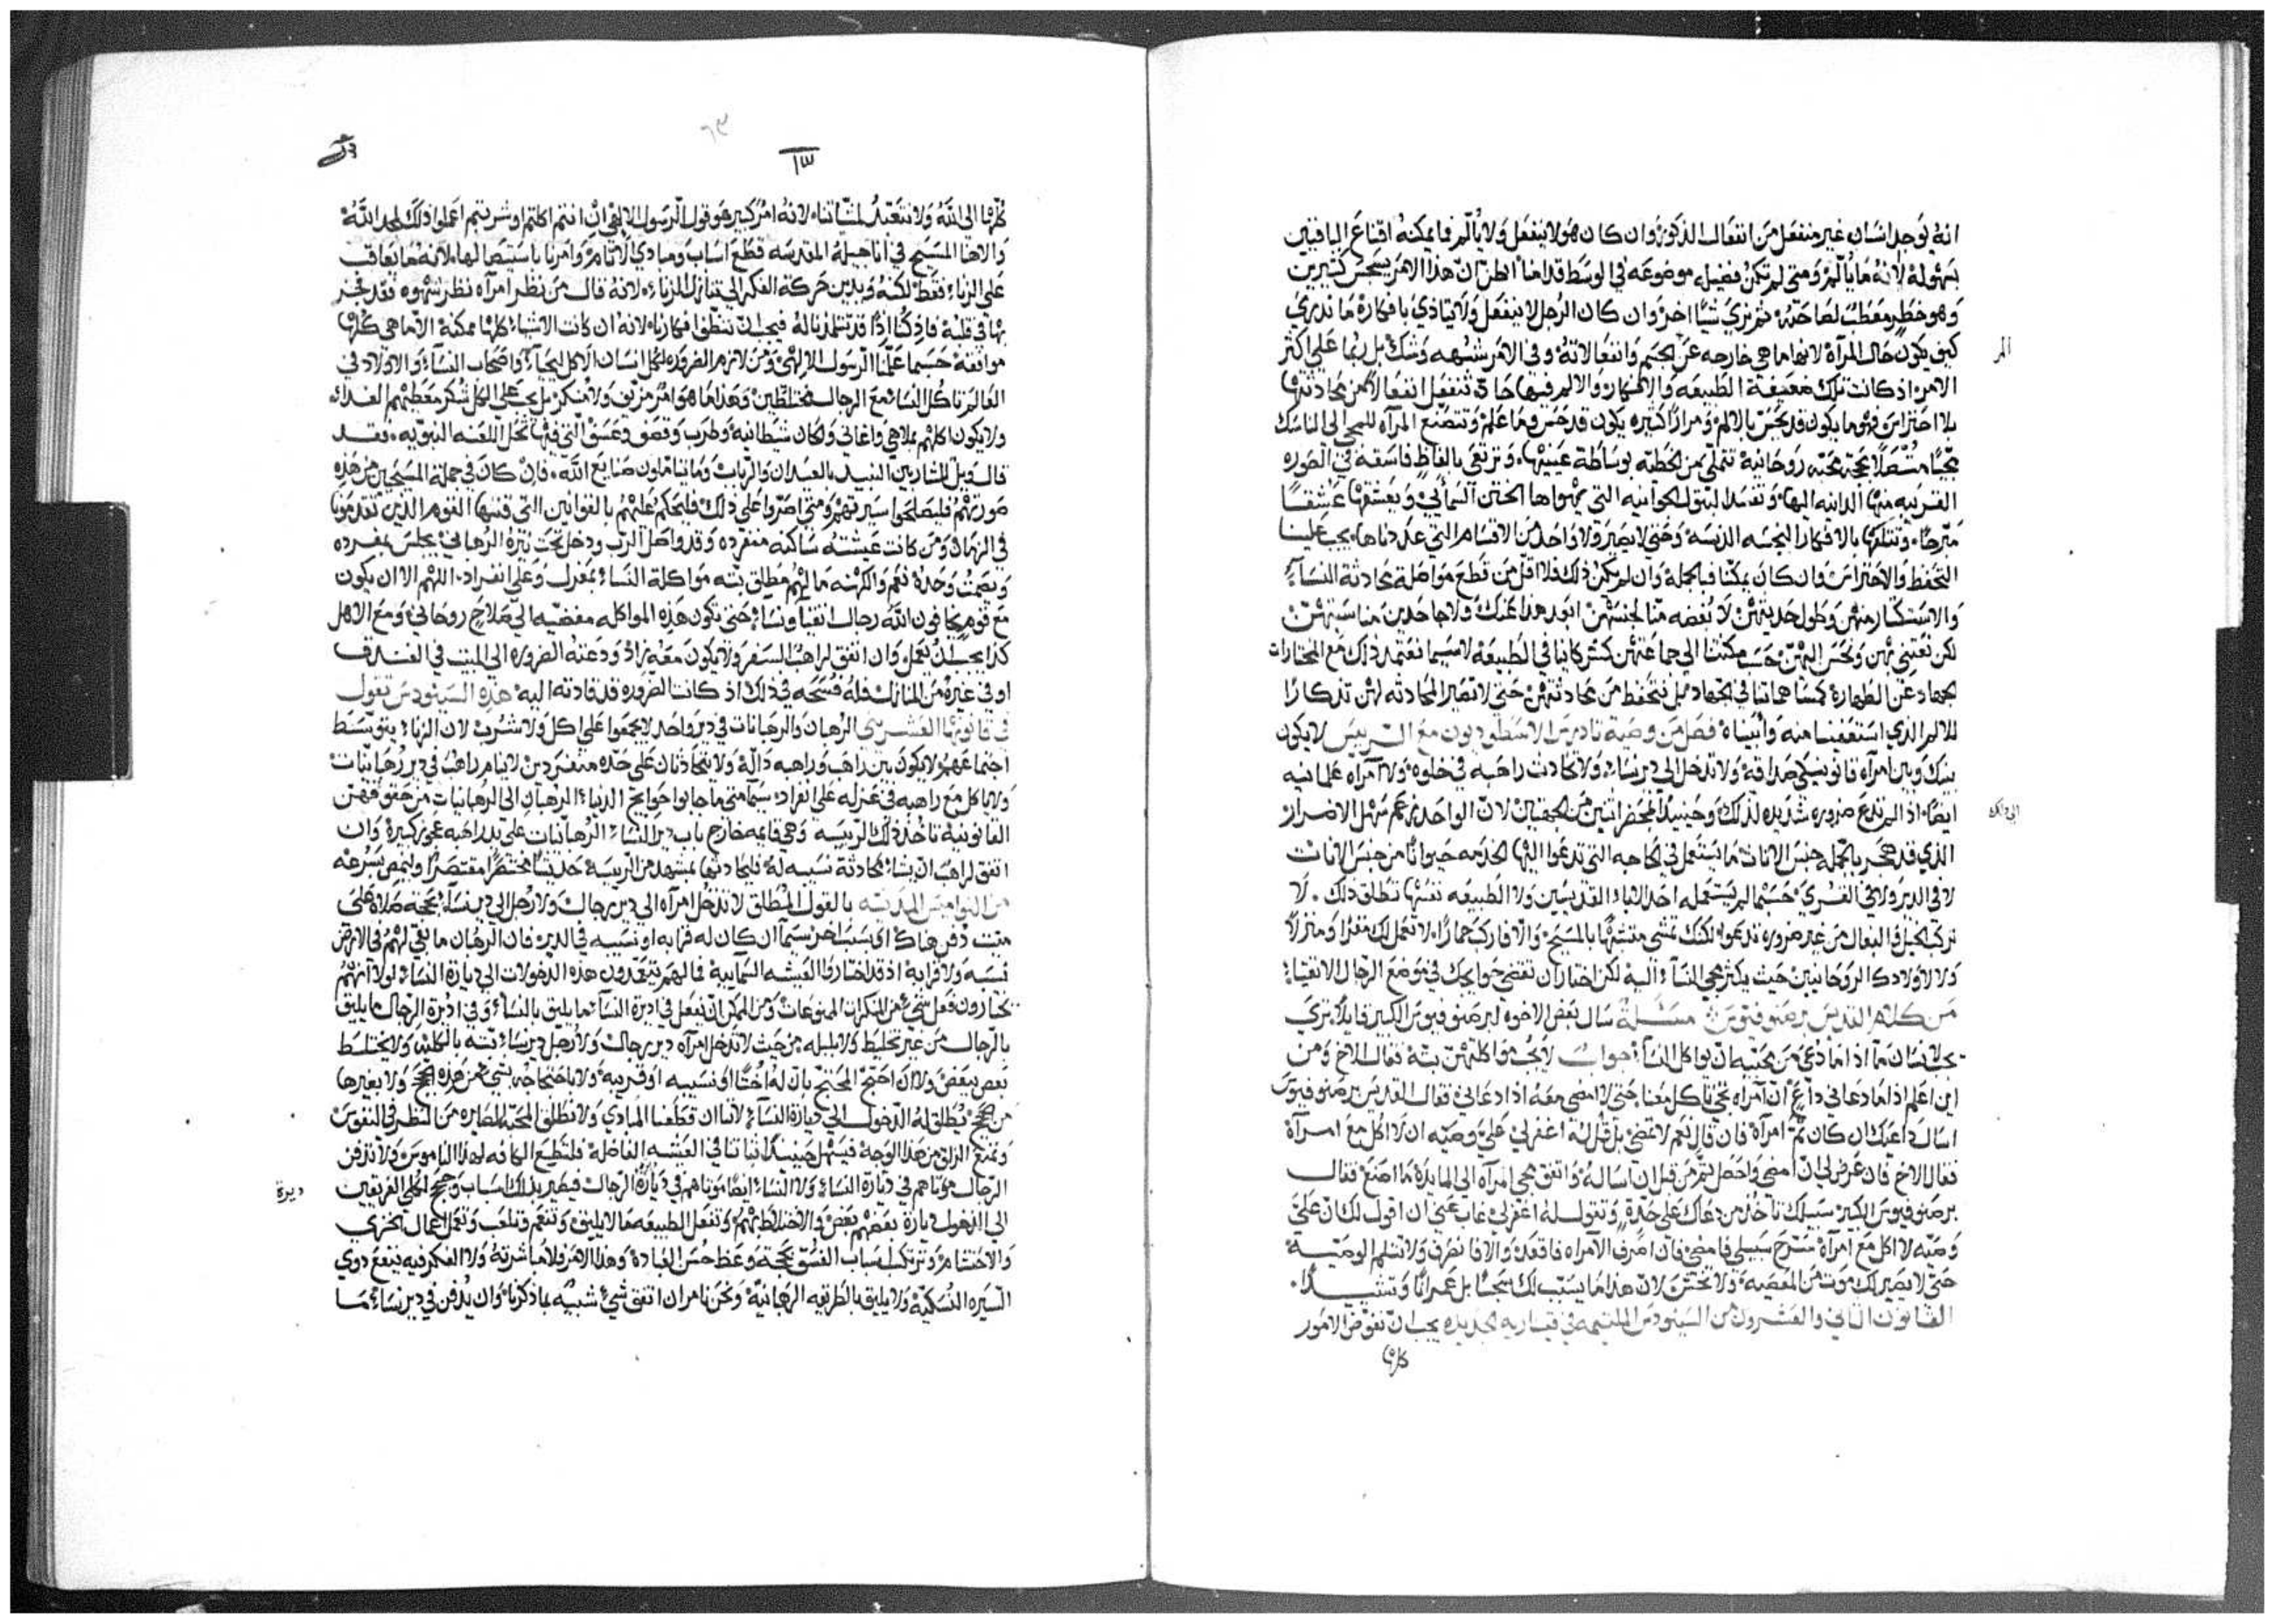 انه يوجد انسان غير منفعل من انفعال الذكوره وان كان هو لا ينفعل ولا يألم فما يمكنه اقناع الباقيين
بسهوله لانه ما يألم ومتى لم تكن فضيله موضوعه في الوسط قدامنا اظن ان هذا الامر يسجس كثيرين
وهو خطر معطب لصاحبه ثم نرى شيا اخر وان كان الرجل لا ينفعل ولا يتاذي بافكاره ما ندري
كيف يكون حال المرآه لانها ما هي خارجه عن الجسم وانفعالاته وفي الامر شبهه وشك بل ربما على اكثر
الامر اذ كانت تلك ضعيفة الطبيعه والافكار والالم فيها حاد تنفعل انفعالا من محادثتها
بلا احتراس وفيما يكون قد يحس بالالم ومرارا كثيره يكون قد حس وما علم وتتصنع المرآه للمجي الى الناسك
محبة روحانية تتملى من لحظته بوساطة عينيها وترتقي بالفاظ فاسقه في الصوره
القريبه منها الدانيه اليها وتفسد البتول الجوانيه التي يهواها الختن السمائي ويعشقها عشقا
مبرحا وتنتلها بالافكار النجسه الدنسه وحتى لا يصير ولا واحد من الاقسام التي عددناها يجب علينا
التحفظ والاحتراس وان كان يمكنا فبالجمله وان لم يكن ذلك فلا اقل من قطع مواصلة محادثة النسآء
والاستكثار منهن وطول حديثهن لا بغضه منا لجنسهن ابعد هذا عنك ولا جاحدين مناسبتهن
لكن نعتني بهن ونحسن اليهن حسب مكنتنا الى جماعتهن كشركائنا في الطبيعه لاسيما نعتمد ذلك مع المختارات
الجهاد عن الطهارة كمساهماتنا في الجهاد بل نتحفظ من محادثتهن حتى لا تصير المحادثه لهن تذكارا
للالم الذي استعفينا منه وابيناه فصل من وصية تادرس الاسطوديون مع الرييس لا يكون
بينك وبين امرآه قانونيكي صداقة ولا تدخل الى دير نساء ولا تحادث راهبه في خلوه ولا امرآه علمانيه
ايضا اذ لم تدع ضروره شديده لذلك وحينيد فليحضر اثنين من الجهتين لان الواحد زعم سهل الاضرار
الذي قد هجر بالجمله جنس الاناث ما يستعمل في الحاجه التي تدعوا اليها الخدمه حيوانا من جنس الاناث
لا في الدير ولا في القرى حسبما لم يستعمله احد الاباء القديسين ولا الطبيعه نفسها تطلق ذلك . لا
تركب الخيل والبغال من غير ضروره تدعوا لكنك تمشي متشبها بالمسيح والا فاركب حمارا لا تعمل لك مقرا ومنزلا
ولا لاولادك الروحانيين حيث يكثر مجي النسآء اليه لكن اختار ان تقضي حوايجك في موضع الرجال الاتقياء
من كلام القديس برصنوفيوس مسئلة سال بعض الاخوه لبرصنوفيوس الكبير قايلا ترى
يجب لانسان ما اذا ما دعي من محبيه ان يواكل النساء جواب لا يجب مواكلتهن بتة فقال الاخ ومن
اين اعلم اذا ما دعاني داع ان امرآه تجي تاكل معنا حتى لا امضي معه اذا دعاني فقال القديس برصنوفيوس
اسال داعيك ان كان ثم امرآة فان قال نعم لا تمضي بل قل له اغفر لي علي وصيه ان لا اكل مع امرآة
فقال الاخ فان عرض لي ان امضي واحصل ثم من قبل ان اساله واتفق مجي المرآه الى المايدة ما اصنع فقال
برصنوفيوس الكبير سبيلك تاخذ من دعاك على حدة وتقول له اغفر لي غاب عني ان اقول لك ان علي
وصيه لا اكل مع امرآة سرح سبيلي فامضي فان اصرف الامراه فاقعد والا فانصرف ولا تثلم الوصيه
حتى لا يصير لك موت من المعصيه ولا تحتشن لان هذا ما يسبب لك سجسا بل عمرانا وتشييدا
القانون الثاني والعشرون من السينودس الملتيمه في قيساريه الجديده يجب ان تفوض الامور
كلها
الم
الى ذلك
٦٣
كلها الى الله ولا نتعبد لمشياتنا لانه امر كبير هو قول الرسول الالهي ان انتم اكلتم او شربتم اعملوا ذلك لمجد الله
والاهنا المسيح في اناجيله المقدسه قطع اسباب ومبادي الاثام وامرنا باستيصالها لانه ما يعاقب
على الزناء فقط لكنه ويدين حركة الفكر التي تنازل الزناء لانه قال من نظر امرآه نظر شهوه فقد فجر
بها في قلبه فاذ كنا اذا قد تتلمذنا له فيجب ان ننظف افكارنا لانه ان كانت الاشياء كلها ممكنة الا ما هي كلها
موافقة حسبما علمنا الرسول الالهي ومن لازم الضروره لكل انسان الاكل ليحيا واصحاب النساء والاولاد في
العالم تاكل النساء مع الرجال مختلطين وهذا ما هو امر مزيف ولا منكر بل يجب على الكل شكر معطيهم الغداء
ولا يكون اكلهم بملاهي واغاني والحان شيطانية وطرب وقصف وعشق التي فيها تحل اللعنه النبويه فقد
قال الويل لشاربين النبيد بالعيدان والرباب وما يتاملون صنايع الله فان كان في جملة المسيحيين من هذه
صورتهم فليصلحوا سيرتهم ومتى اصروا على ذلك فليحكم عليهم بالقوانين التي قننها القوم الذين تقدمونا
في الزمان ومن كانت عيشته ساكنه منفرده وقد واصل الرب ودخل تحت نيرة الرهباني يجلس بمفرده
ويصمت وحده نعم والكهنه ما لهم مطلق بته مواكلة النساء بمعزل وعلى انفراد اللهم الا ان يكون
مع قوم يخافون الله رجال اتقيا ونساء حتى تكون هذه المواكله مفضيه الى صلاح روحاني ومع الاهل
كذا يجب ان يعمل وان اتفق لراهب السفر ولا يكون معه زاد ودعته الضروره الى المبيت في الفندق
او في غيره من المنازل فله فسحه في ذلك اذ كانت الضروره قد قادته اليه هذه السينودس تقول
في قانونها العشرين الرهبان والرهبانات في دير واحد لا يجمعوا على اكل ولا شرب لان الزناء يتوسط
اجتماعهم ولا يكون بين راهب وراهبه دالة ولا يتحادثان على حده منفردين لا ينام راهب في دير رهبانيات
ولا ياكل مع راهبه في عزله على انفراد سيما متى ما جابوا حوايج الدنيا الرهبان الى الرهبانيات من حقوقهن
القانونية تاخذ ذلك الرييسه وهي قايمه خارج باب دير النساء الرهبانيات على يد راهبه عجوز كبيرة وان
اتفق لراهب ان يشاء محادثة نسيبه له فليحادثها بمشهد من الرييسة حديثا مختصرا مقتصرا ولينهض بسرعه
من النواميس المدنيه بالقول المطلق لا تدخل امرآه الى دير رجال ولا رجل الى دير نساء بحجة صلاة على
ميت دفن هناك او بسبب اخر سيما ان كان له قرابه او نسيبه في الدير فان الرهبان ما بقي لهم في الارض
نسبه ولا قرابة اذ قد اختاروا العيشه السمايية فما لهم يتعمدون هذه الدخولات الى ديارة النساء لولا انهم
يختارون فعل شيء من المنكرات الممنوعات ومن الممكن ان يفعل في اديرة النساء ما يليق بالنساء وفي اديرة الرجال ما يليق
بالرجال من غير تخليط ولا بلبله من حيث لا تدخل امرآه دير رجال ولا رجل دير نساء بته بالكليه ولا يختلط
بعض ببعض ولا ان احتج المحتج بان له اختا او نسيبه او قريبة ولا باحتجاجه بشي من هذه الحجج ولا بغيرها
من حجج يطلق له الدخول الى ديارة النساء لاننا ان قطعنا المبادي ولا نطلق المحبه الصايره من النظر في النفوس
ونمنع الزلق من هذا الوجه فيسهل حينيد ثباتنا في العيشه الفاضلة فلتطيع الكافه لهذا الناموس ولا تدفن
الرجال موتاهم في ديارة النساء ولا النساء ايضا موتاهم في ديارة الرجال فيصير بذلك اسباب وحجج لكلي الفريقين
الى الدخول ديارة بعضهم بعض والاختلاط بهم وتفعل الطبيعه ما لا يليق وتتنعم وتلعب وتعمل اعمال الخزي
والاحتشام وترتكب اسباب الفسق بحجة وعظ حسن العبادة وهذا الامر فلا مباشرته ولا الفكر فيه ينفع ذوي
السيره النسكيه ولا يليق بالطريقه الرهبانية ونحن نامر ان اتفق شيء شبيه بما ذكرنا وان يدفن في دير نساء ما
ديرة